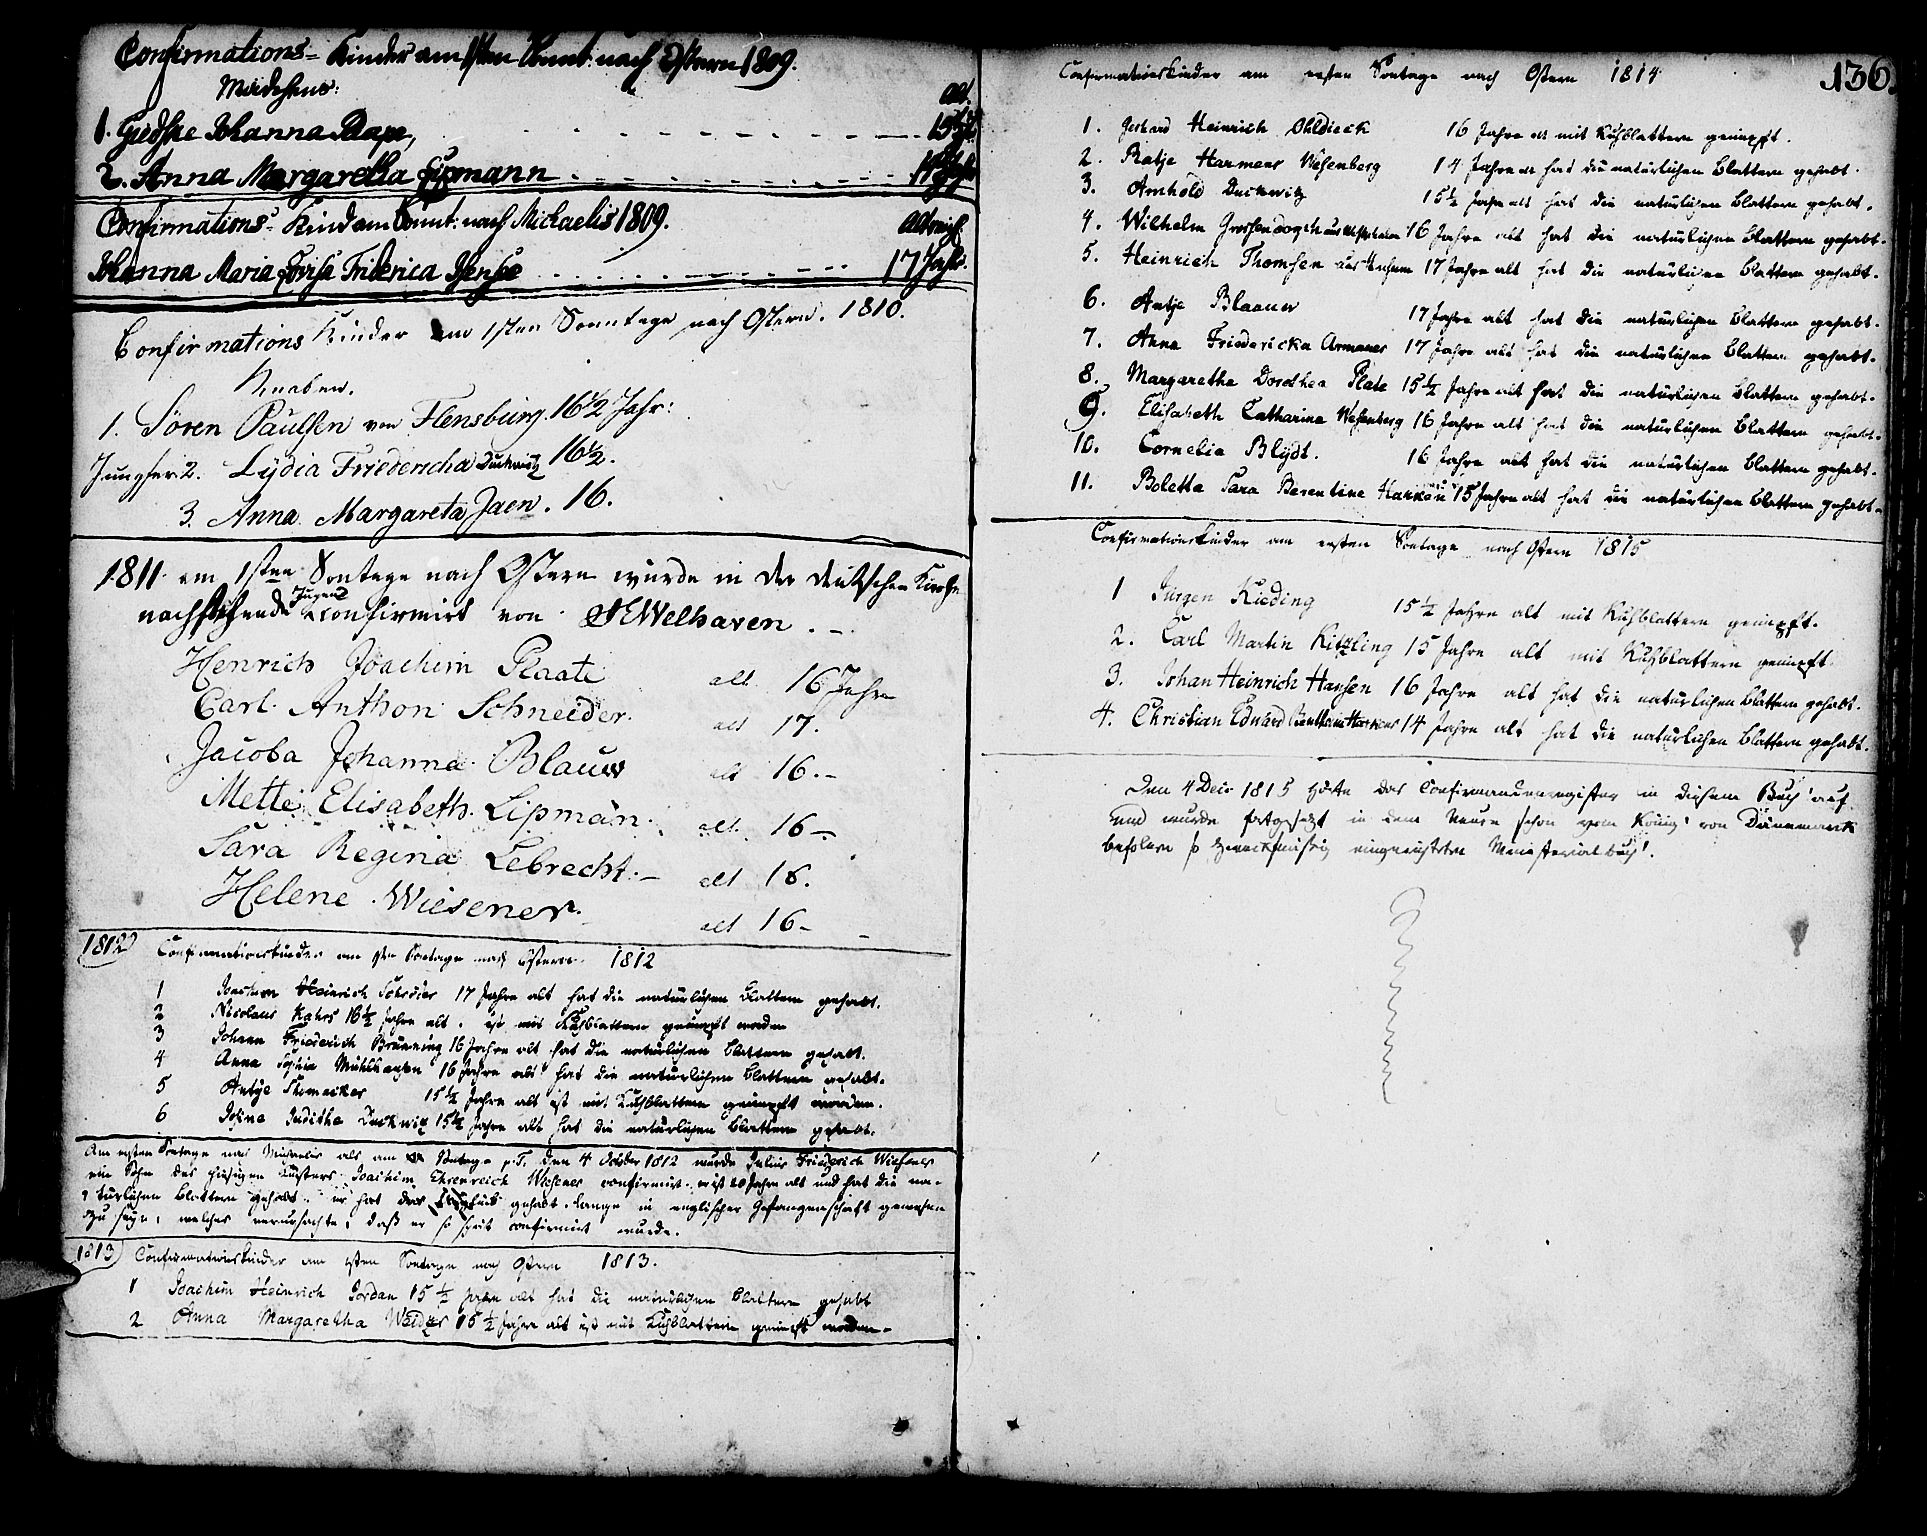 Confirmations-Kinder am 1sten Sonnt: nach Ostern 1809.
Mädchens:
alt.
1. Giedske Johanna
2. Anna Margaretha Lipmann
Confirmations-Kind am Sonnt: nach Michaelis 1809.
Johanna Maria Lovisa Friderica Isensee 17 Jahr.
Confirmations Kinder am 1sten Sonntage nach Ostern. 1810.
Knaben.
1. Sören Paulsen von Flensburg. 16 1/2 Jahr:
Jungfer 2. Lydia Friedericha Duckwitz 16 1/2.
3. Anna Margareta Jaen. 16.
1811 am 1sten Sontage nach Ostern wurde in der deutschen Kirche
nachstehende Jugend confirmirt von JEWelhaven.
Henrich Joachim Plaate alt 16 Jahre
Carl Anthon Schneider. alt 17.
Jacoba Johanna Blauw alt 16.-
Mette Elisabeth Lipman. alt 16-
Sara Regina Lebrecht.- alt 16.
Helene Wiesener. alt 16-
1812 Confirmationskinder am 1sten Sontage nach Ostern 1812
1 Joachim Heinrich Schröder 17 Jahre alt hat die natürlichen Blattern gehabt.
2 Nicolaus Kahrs 16 1/2 Jahre alt. ist mit Kuhblattern geimpft worden
3 Johann Friederich Brünning 16 Jahre alt hat die natürlichen Blattern gehabt.
4 Anna Sophia Mühlhausen 16 Jahre alt hat die natürlichen Blattern gehabt.
5 Antje Thomacker 15 1/2 Jahre alt ist mit Kuhblattern geimpft worden.
6 Juditha Duckwitz 15 1/2 Jahre alt hat die natürlichen Blattern gehabt.
Am ersten Sontage nach Michaelis als am Sontage p.T. den 4 October 1812 wurde Julius Friederich Wiesener
ein Sohn des hiesigen Küsters Joachim Ehrenreich Wiesener confirmirt. er ist 20 Jahre alt und hat die na-
türlichen Blattern gehabt. er hat das Unglück gehabt lange in englischer Gefangenschaft gewesen
zu seyn, welches verursachte, daß er so spät confirmirt wurde.
1813 Confirmationskinder am 1sten Sontage nach Ostern 1813.
1 Joachim Heinrich Jordan 15 1/2 Jahre alt hat die natürlichen Blattern gehabt
2 Anna Margaretha 15 1/2 Jahre alt ist mit Kuhblattern geimpft worden.
136.
Confirmationskinder am ersten Sontage nach Ostern 1814
1. Gerhard Heinrich Ohldieck 16 Jahre alt mit Kuhblattern geimpft.
2. Ratje Harmens Wesenberg 14 Jahre alt hat die natürlichen Blattern gehabt.
3. Arnhold Duckwitz 15 1/2 Jahre alt hat die natürlichen Blattern gehabt.
4. Wilhelm 16 Jahre alt hat die natürlichen Blattern gehabt.
5. Heinrich Thomsen aus 17 Jahre alt hat die natürlichen Blattern gehabt.
6. Antje Blaauw 17 Jahre alt hat die natürlichen Blattern gehabt.
7. Anna Friedericka Armauer 17 Jahre alt hat die natürlichen Blattern gehabt.
8. Margaretha Dorothea Plate 15 1/2 Jahre alt hat die natürlichen Blattern gehabt.
9. Elisabeth Catharina Wesenberg 16 Jahre alt hat die natürlichen Blattern gehabt.
10. Cornelia Blydt. 16 Jahre alt hat die natürlichen Blattern gehabt.
11. Boletta Sara Berentine 15 Jahre alt hat die natürlichen Blattern gehabt.
Confirmationskinder am ersten Sontage nach Ostern 1815
1 Jürgen Kieding 15 1/2 Jahre alt mit Kuhblattern geimpft.
2. Carl Martin Kitzling 15 Jahre alt mit Kuhblattern geimpft.
3. Johan Heinrich Hansen 16 Jahre alt hat die natürlichen Blattern gehabt.
4. Christian Eduard 14 Jahre alt hat die natürlichen Blattern gehabt.
Den 4 Decr 1815 hörte das Confirmandenregister in diesem Buch auf
und wurde fortgesetzt in dem Neuen schon vom König von Dännemark
befolnen so zweckmäßig eingerichteten Ministerialbuch.